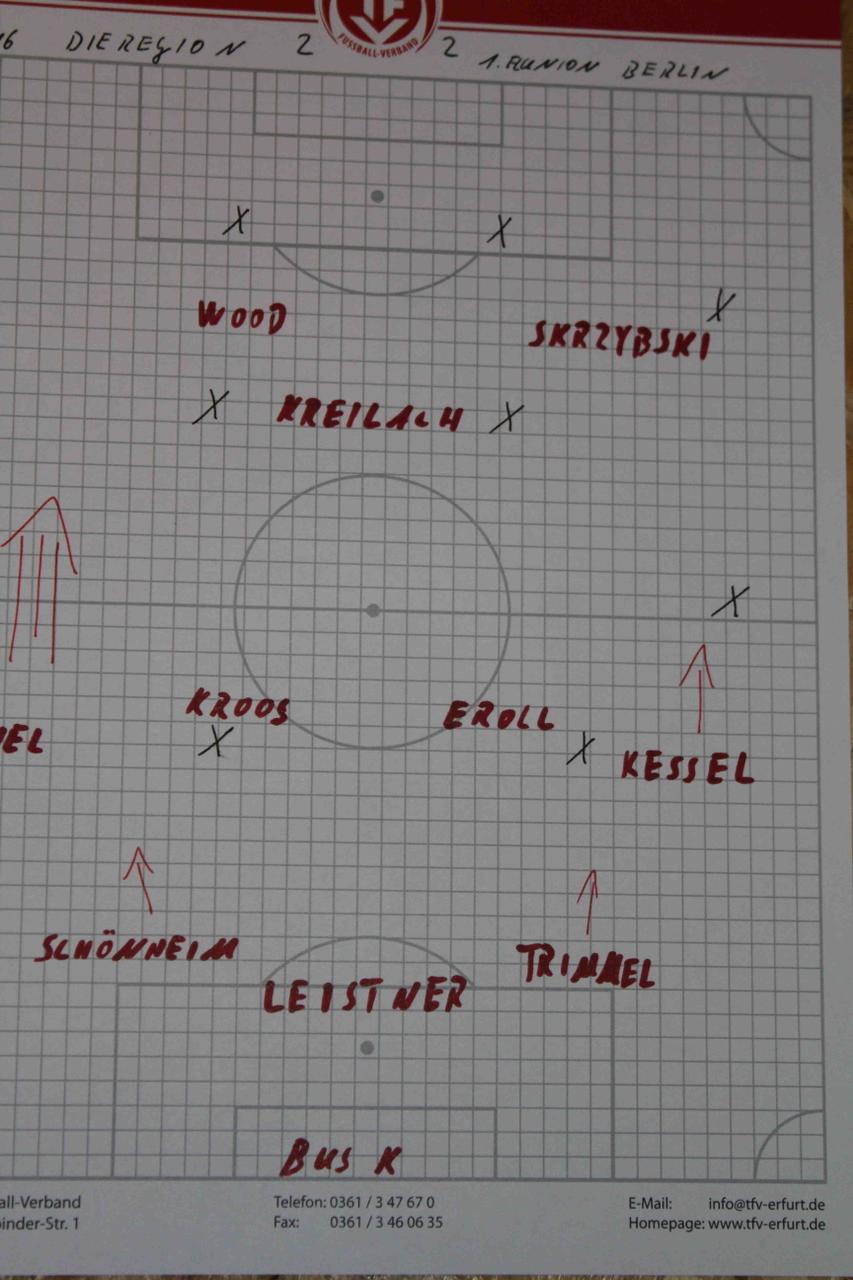 FUSSBALL-VERBAND
16 DIEREGION 2 2 1.FUNION BERLIN
X X
X
WOOD SKRZYBSKI
X KREILACH X
X
KROOS EROLL
X X
EL KESSEL
SCHÖNHEIM TRIMMEL
LEISTNER
BUSK
all-Verband Telefon: 0361 / 3 47 67 0 E-Mail: info@tfv-erfurt.de
binder-Str. 1 Fax: 0361 / 3 46 06 35 Homepage: www.tfv-erfurt.de